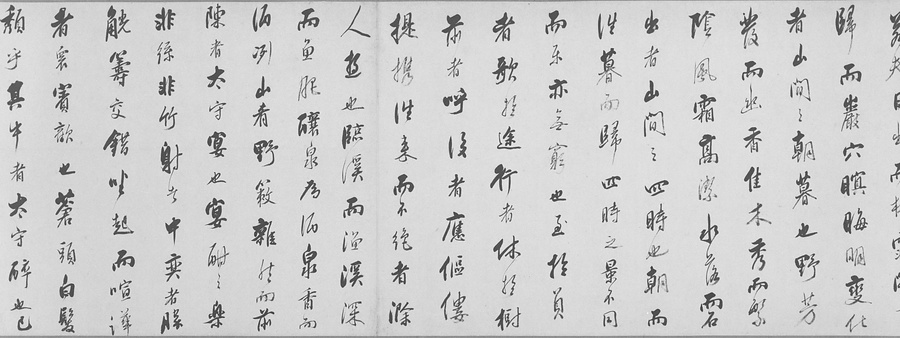 若夫日出而林霏開
歸而巖穴暝晦明變化
者山間之朝暮也野芳
發而幽香佳木秀而繁
陰風霜高潔水落而石
出者山間之四時也朝而
往暮而歸四時之景不同
而樂亦無窮也至於負
者歌於途行者休於樹
前者呼後者應傴僂
提攜往來而不絕者滁
人遊也臨溪而漁溪深
而魚肥釀泉為酒泉香而
酒冽山肴野蔌雜然而前
陳者太守宴也宴酣之樂
非絲非竹射者中奕者勝
觥籌交錯坐起而喧譁
者眾賓歡也蒼頭白髮
頹乎其中者太守醉也已